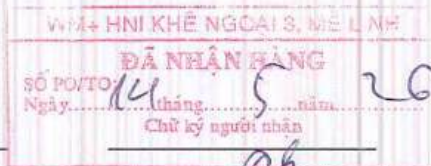 WM+ HNI KHÊ NGOẠI 3, MÊ LINH
ĐÃ NHẬN HÀNG
SỐ PO/TO
Ngày 14 tháng 5 năm 26
Chữ ký người nhận